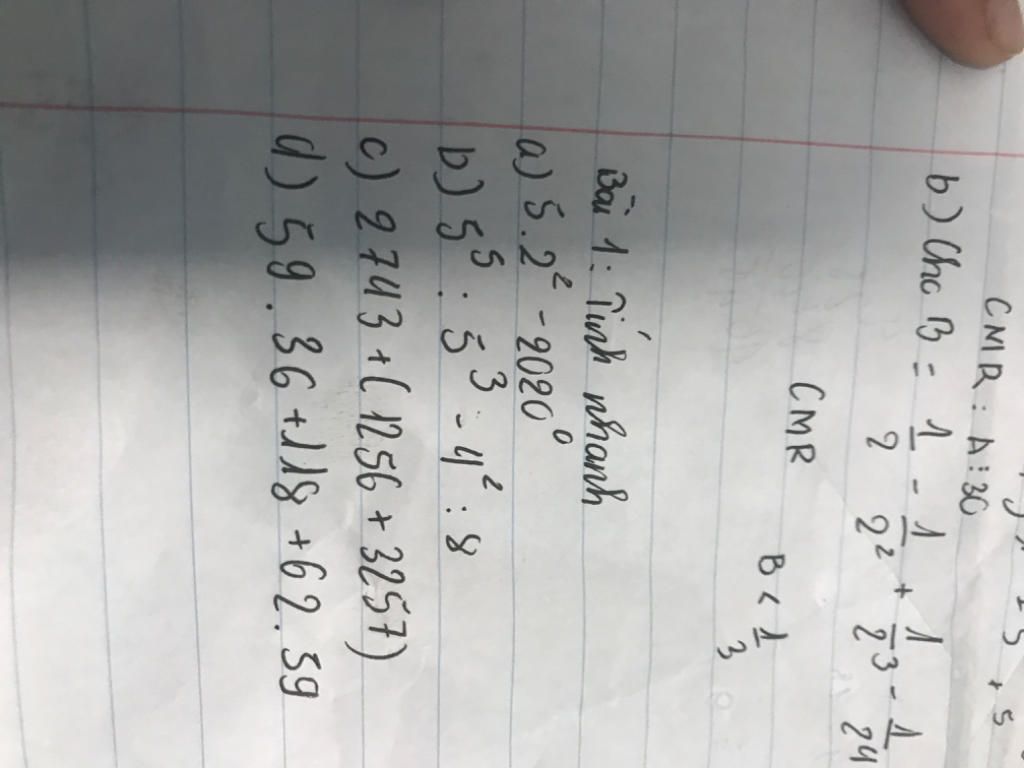 + 5
CMR : A ⋮ 30
b) Cho B = 1/2 - 1/2² + 1/2³ - 1/24
CMR B < 1/3
Bài 1: Tính nhanh
a) 5.2² - 2020⁰
b) 5⁵ : 5³ - 4² : 8
c) 2743 + ( 1256 + 3257)
d) 59 . 36 + 118 + 62 . 59